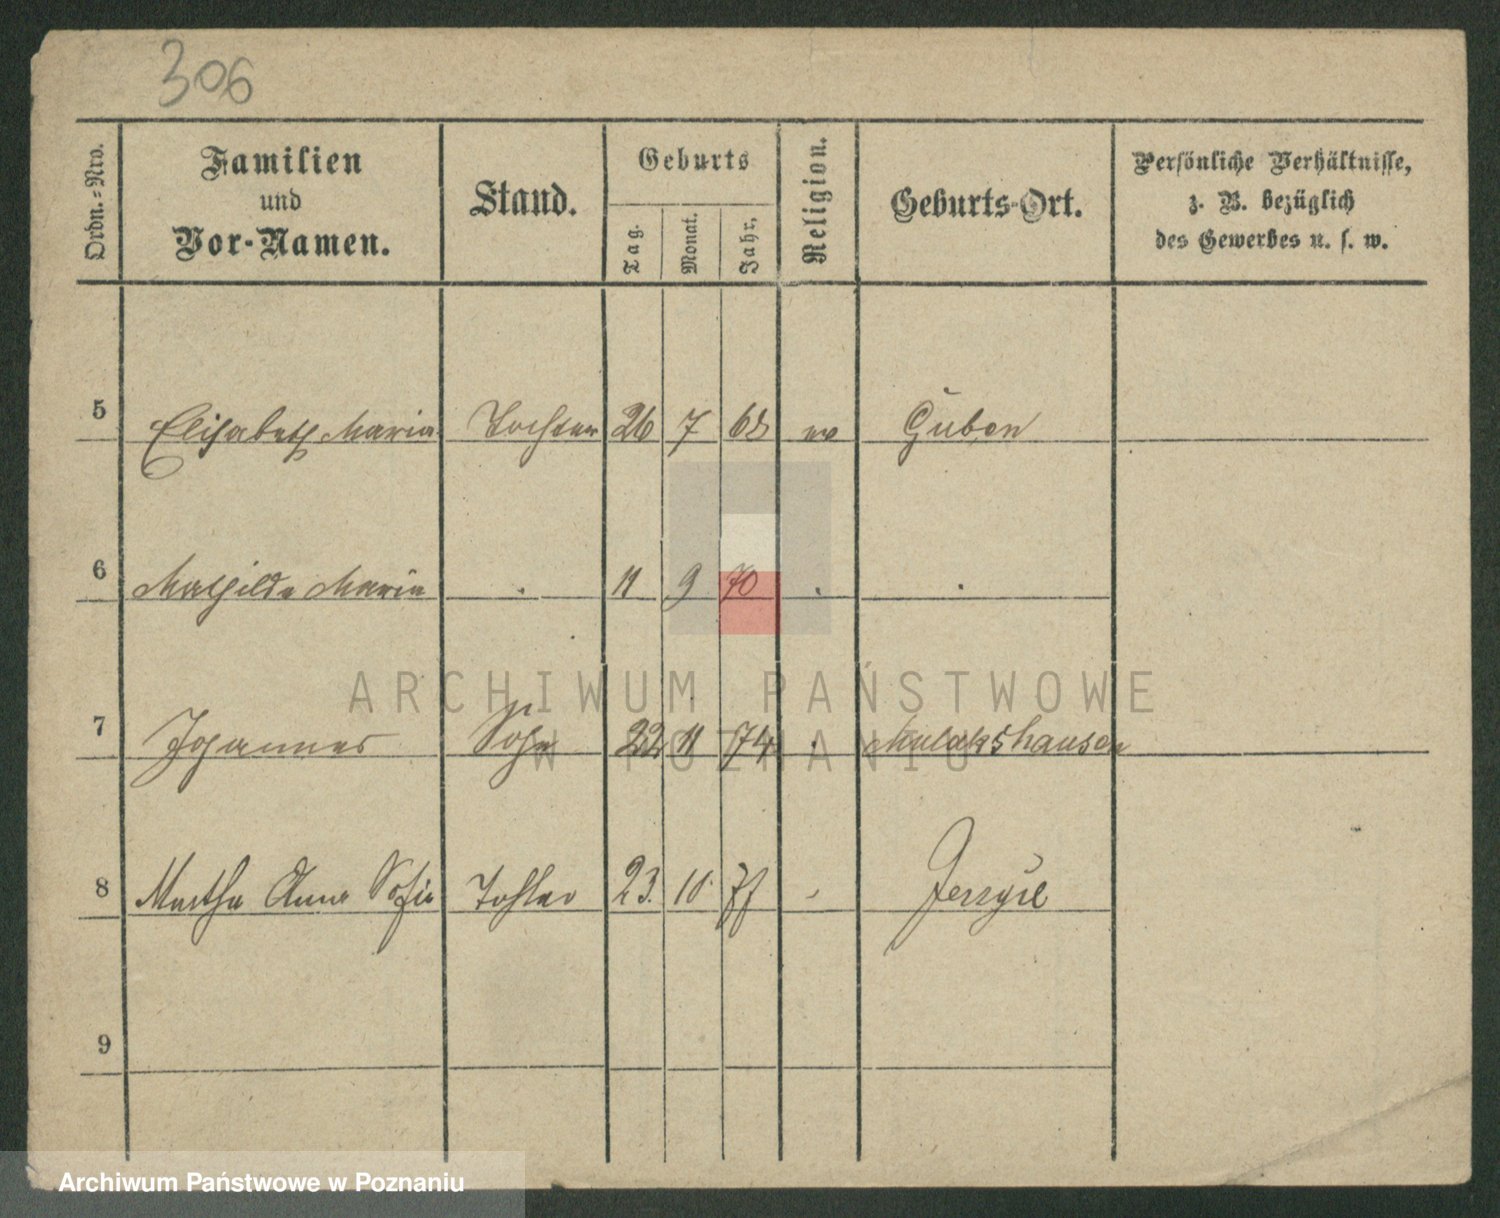 306
Ordn.-Nro.
Familien
und
Vor-Namen.
Stand.
Geburts
Tag.
Monat.
Jahr.
Religion.
Geburts-Ort.
Persönliche Verhältnisse,
z. B. bezüglich
des Gewerbes u. s. w.
5 Elisabeth Maria Tochter 26 7 68 ev Guben
6 Mathilde Maria . 11 9 70 . .
ARCHIWUM PAŃSTWOWE
W POZNANIU
7 Johannes Sohn 22 11 74 .
8 Martha Anna Sofie Tochter 23. 10. 77 -
9
Archiwum Państwowe w Poznaniu